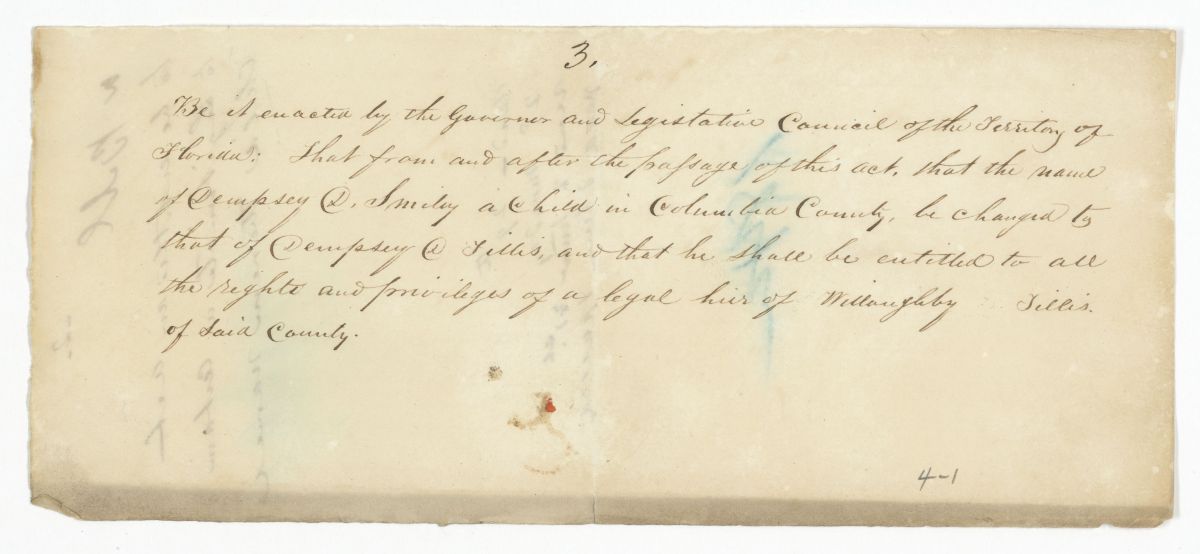 3.
Be it enacted by the Governor and Legistative Council of the Territory of
Florida: That from and after the passage of this act, that the name
of Dempsey D. Smiley a Child in Columbia County, be changed to
that of Dempsey D Tillis, and that he shall be entitled to all
the rights and privileges of a legal hier of Willoughby Tillis.
of Said County.
4-1